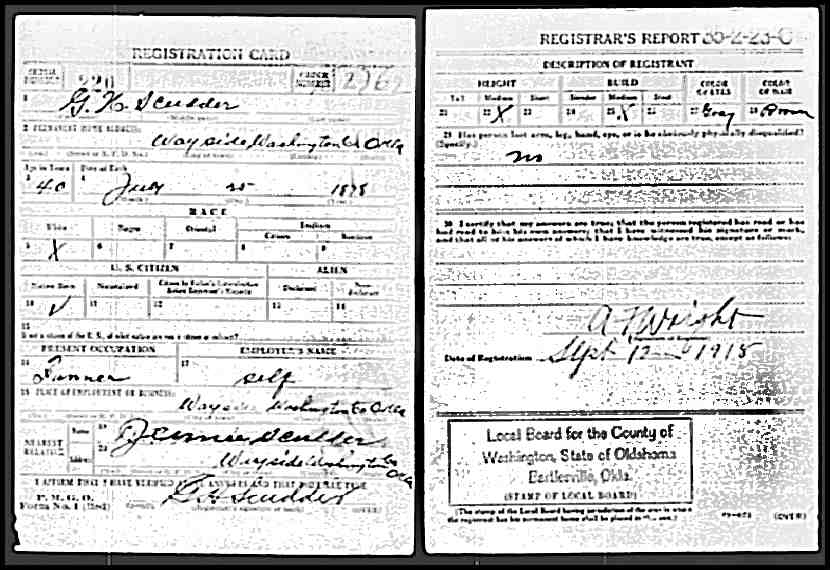 REGISTRATION CARD
SERIAL NUMBER 520 ORDER NUMBER
G. H. Scudder
2 PERMANENT HOME ADDRESS:
Wayside Washington Co Okla
Age in Years Date of Birth
40 July 25 1878
RACE
White Negro Oriental Indian
Citizen
5 X 6 7 8 9
U. S. CITIZEN ALIEN
Native Born Naturalized Declarant
10 11 12 13 14
15
PRESENT OCCUPATION EMPLOYER'S NAME
16 17
self
PLACE OF EMPLOYMENT OR BUSINESS:
Wayside Washington Co Okla
NEAREST RELATIVE Name 19 Jennie Scudder
Address 20 Wayside Washington Co Okla
I AFFIRM THAT I HAVE VERIFIED ANSWERS AND THAT THEY ARE TRUE
P. M. G. O.
Form No. 1 (Red)
G H Scudder
(OVER)
REGISTRAR'S REPORT 35-2-23-C
DESCRIPTION OF REGISTRANT
HEIGHT BUILD COLOR OF EYES COLOR OF HAIR
Tall Medium Short Slender Medium Stout
21 22 X 23 24 25 X 26 27 Gray 28 Brown
29 Has person lost arm, leg, hand, eye, or is he obviously physically disqualified?
(Specify.)
no
30 I certify that my answers are true; that the person registered has read or has
had read to him his own answers; that I have witnessed his signature or mark,
and that all of his answers of which I have knowledge are true, except as follows:
Date of Registration Sept 12 1918
Local Board for the County of
Washington, State of Oklahoma
Bartlesville, Okla.
(STAMP OF LOCAL BOARD)
(The stamp of the Local Board having jurisdiction of the area in which
the registrant has his permanent home shall be placed in this box.)
(OVER)